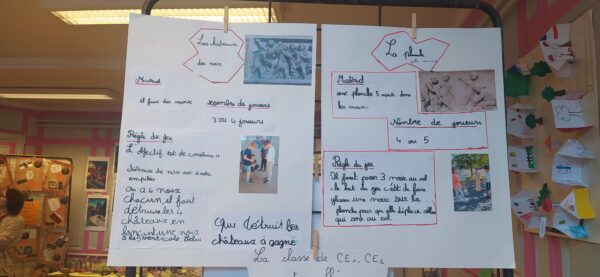 Les châteaux
de noix
Matériel
il faut des noix
nombre de joueurs
3 ou 4 joueurs
Règle du jeu
L'objectif est de construire 4
châteaux de noix
empilées
on a 4 noix
chacun, il faut
4
châteaux en
lançant une noix
Qui détruit les
châteaux a gagné
La planche
Matériel
une planche 5 noix dans
les mains
Nombre de joueurs
4 ou 5
Règle du jeu
Il faut poser 3 noix au sol
le but du jeu c'est de faire
glisser une noix sur la
planche pour qu'elle déplace celles
qui sont au sol.
La classe de CE1, CE2